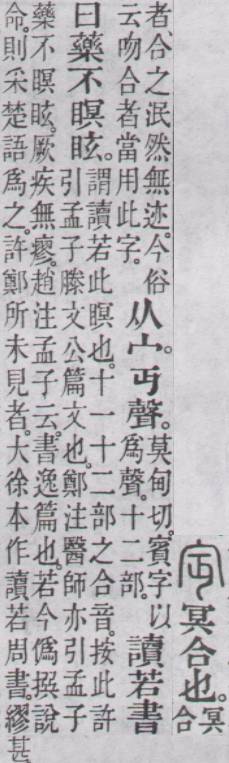 冥合也。冥合
者、合之泯然無迹。今俗云吻合者當用此字。从宀。丏聲。莫甸切。賓字以爲聲。十二部。讀若書
曰藥不瞑眩。謂讀若此瞑也。十一十二部之合音。按此許引孟子滕文公篇文也。鄭注醫師亦引孟子
藥不瞑眩。厥疾無瘳。趙注孟子云。書逸篇也。若今僞撰說命。則采楚語爲之。許鄭所未見者。大徐本作讀若周書。繆甚。